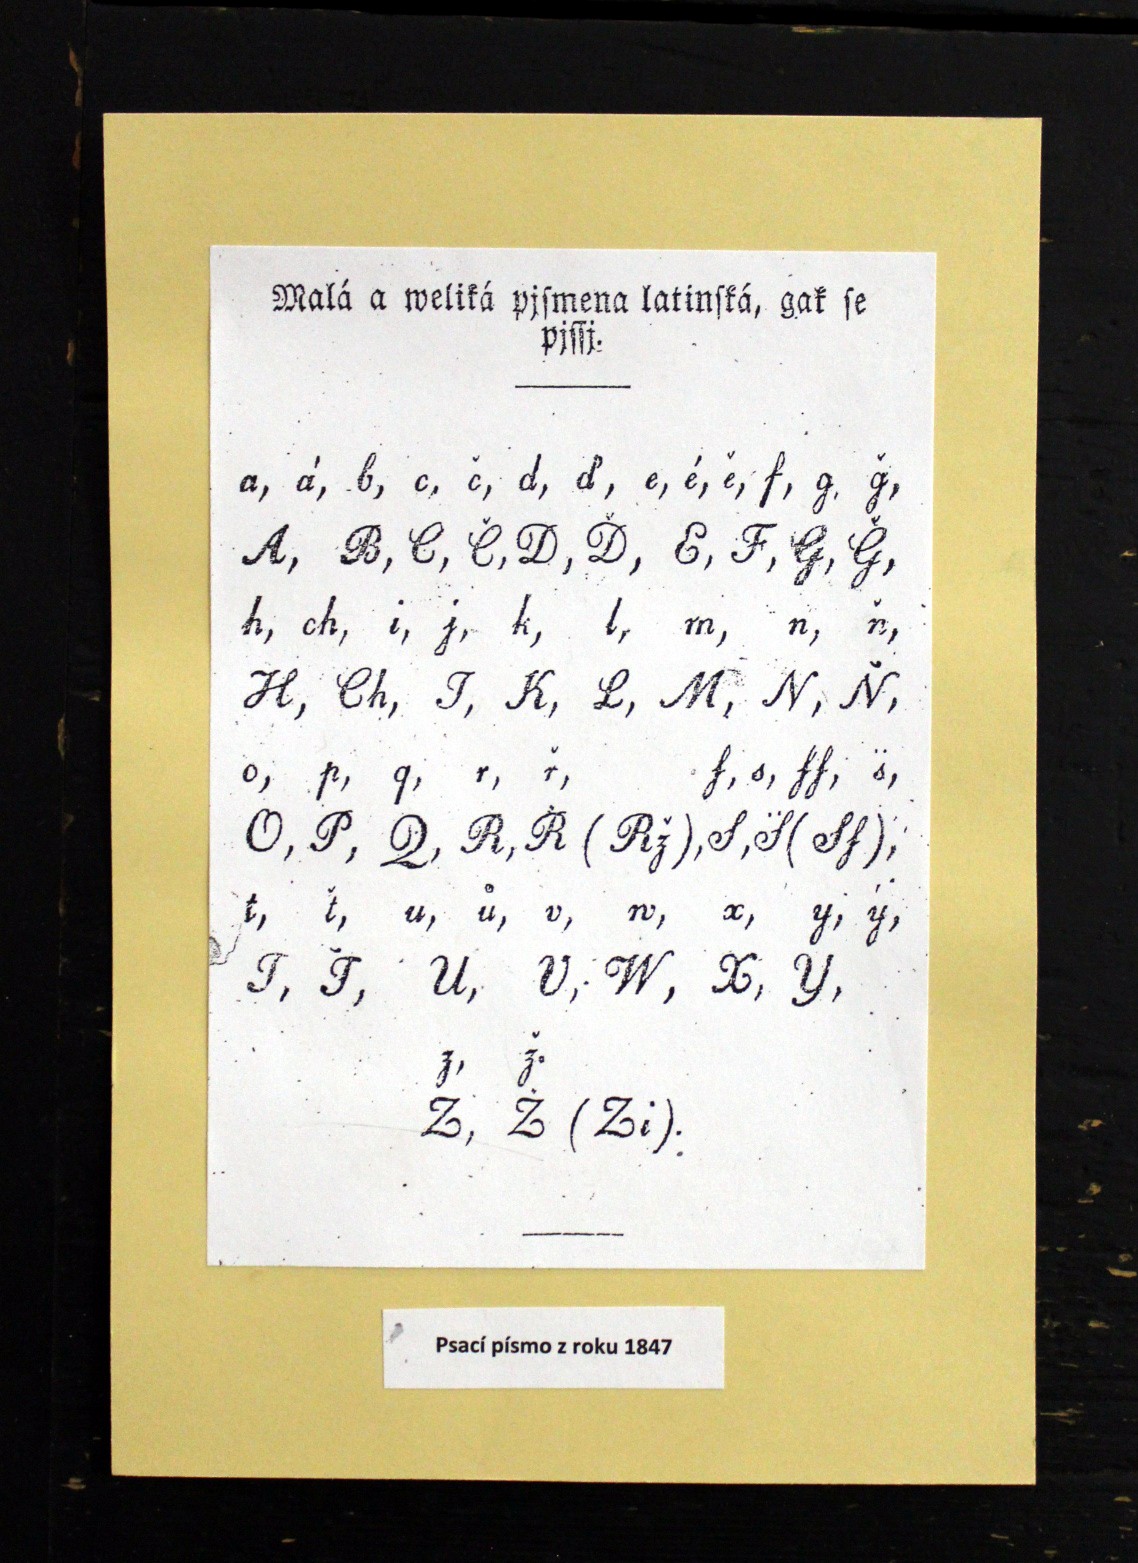 Malá a weliká pjſmena latinſká, gak ſe
pjſſj.
a, á, b, c, č, d, ď, e, é, ě, f, g, ǧ,
A, B, C, Č, D, Ď, E, F, G, Ǧ,
h, ch, i, j, k, l, m, n, ň,
H, Ch, I, K, L, M, N, Ň,
o, p, q, r, ř, ſ, s, ſſ, s̈,
O, P, Q, R, Ř (Rž), S, S̈ (Sſ),
t, ť, u, ů, v, w, x, y, ý,
T, Ť, U, V, W, X, Y,
z, ž.
Z, Ż (Zi).
Psací písmo z roku 1847